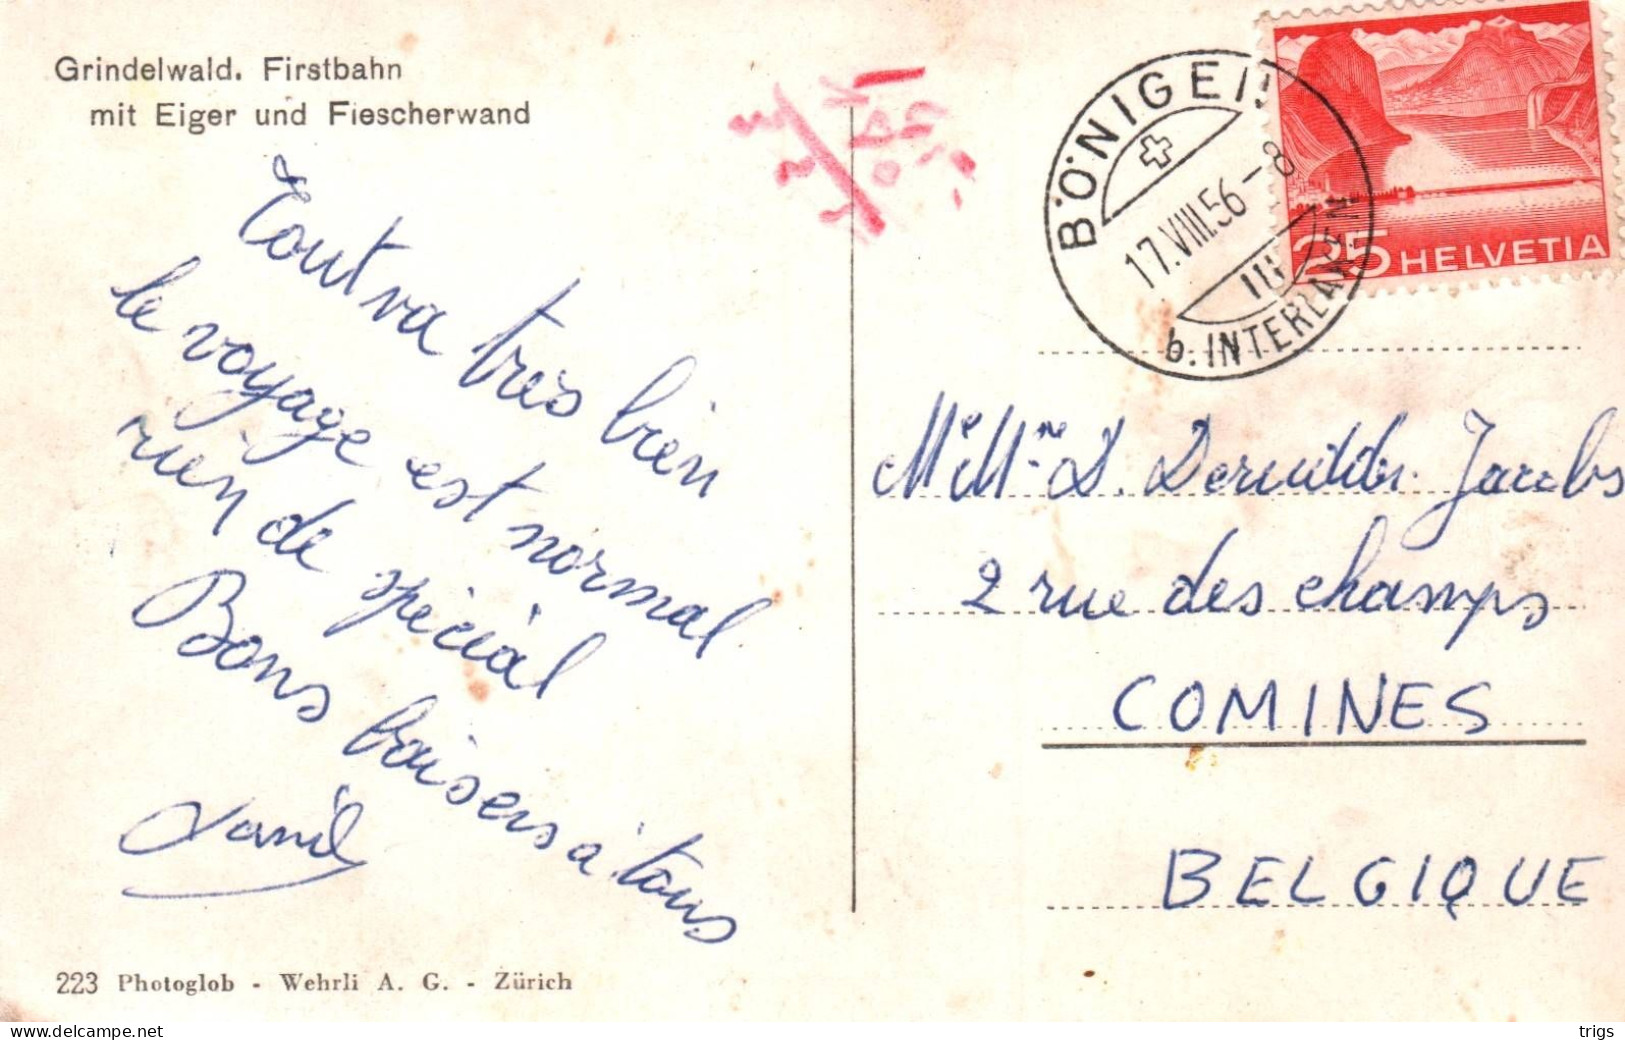 Grindelwald. Firstbahn
mit Eiger und Fiescherwand
Tout va tres bien
le voyage est normal
rien de spécial
Bons baisers à tous
Danil
223 Photoglob - Wehrli A. G. - Zürich
BÖNIGEN
17.VIII.56-8
III
b. INTERLAKEN
25 HELVETIA
Mr Mme D. Jacobs
2 rue des champs
COMINES
BELGIQUE
delcampe.net
trigs